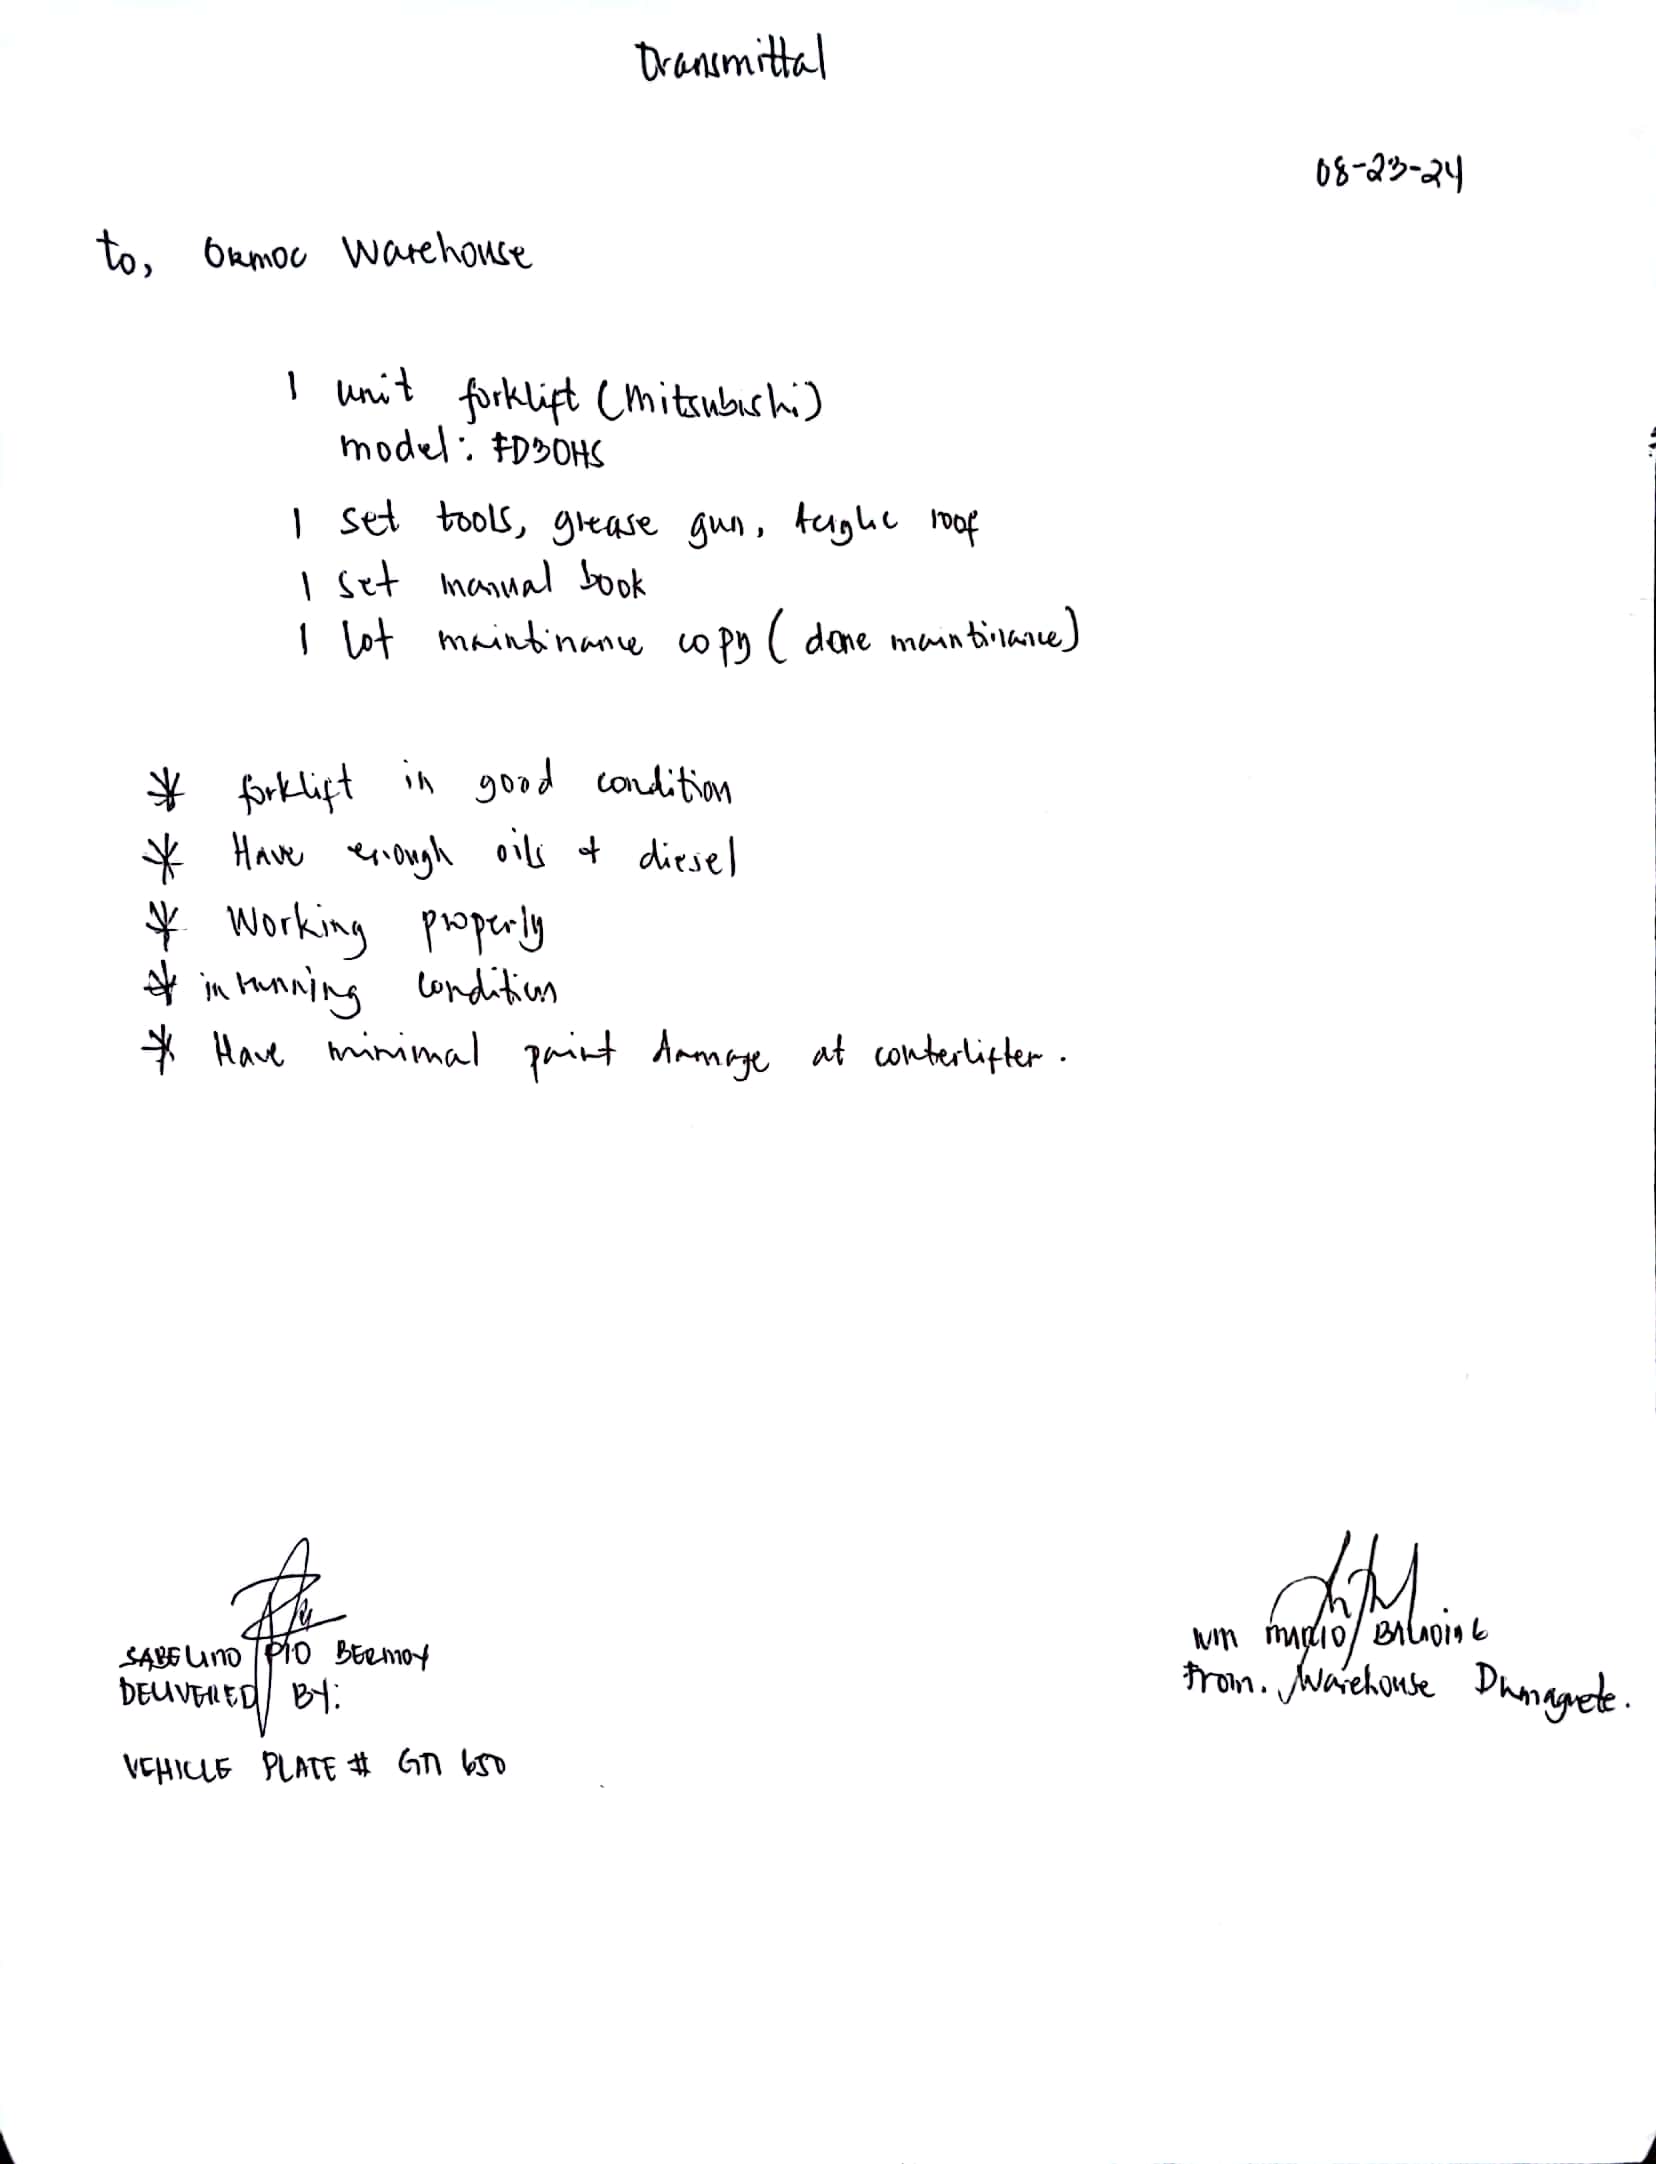 Transmittal
08-23-24
to, Ormoc Warehouse
1 unit forklift (mitsubishi)
model: FD30HS
1 set tools, grease gun, Acrylic roof
1 set manual book
1 lot maintinance copy (done maintinance)
* forklift in good condition
* Have enough oils & diesel
* Working properly
* in running condition
* Have minimal paint damage at conterlifter.
SABELINO PIO BERMOY
DELIVERED BY:
VEHICLE PLATE # GM 650
WM MARIO
From. Warehouse Dumaguete.